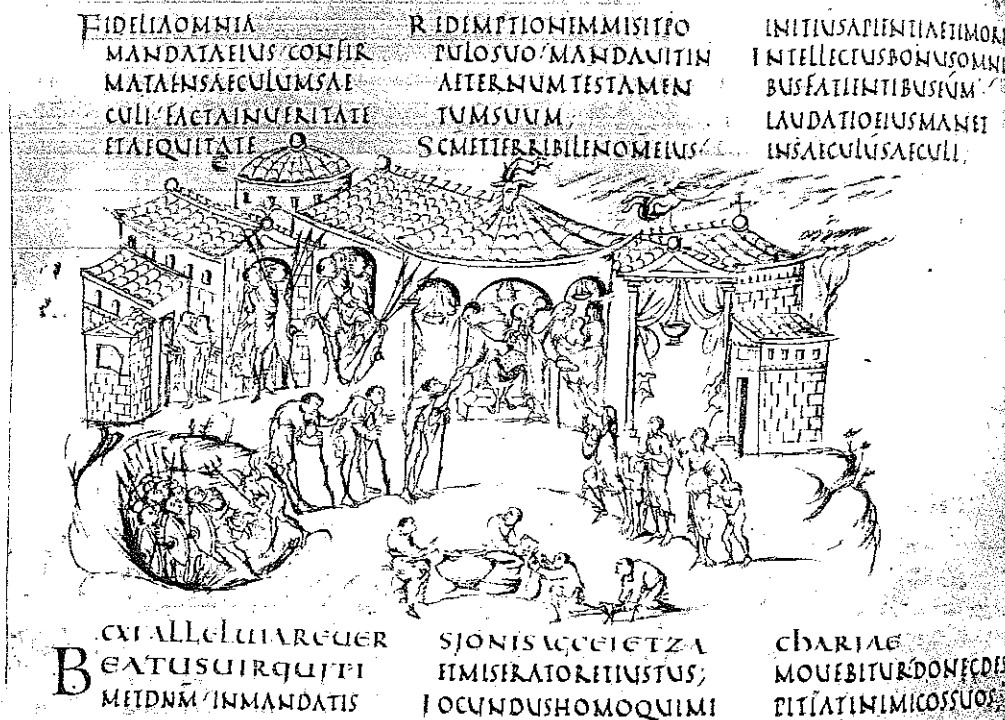 FIDELIAOMNIA
MANDATAEIUS/CONFIR
MATAENSAECULUMSAE
CULI/FACTAINUERITATE
ETAEQUITATE
REDEMPTIONEMMISITPO
PULOSUO/MANDAUITIN
AETERNUMTESTAMEN
TUMSUUM;
SCMETTERRIBILENOMEIUS/
INITIUSAPIENTIAETIMOR
INTELLECTUSBONUSOMNI
BUSFATIENTIBUSEUM/
LAUDATIOEIUSMANET
INSAECULŪSAECULI;
CXI ALLELUIAREUER SIONIS AGGEIETZA CHARIAE
BEATUSUIRQUITI
METDNM/INMANDATIS
ETMISERATORETIUSTUS;
IOCUNDUSHOMOQUIMI
MOUEBITUR/DONECDES
PITIATINIMICOSSUOS;